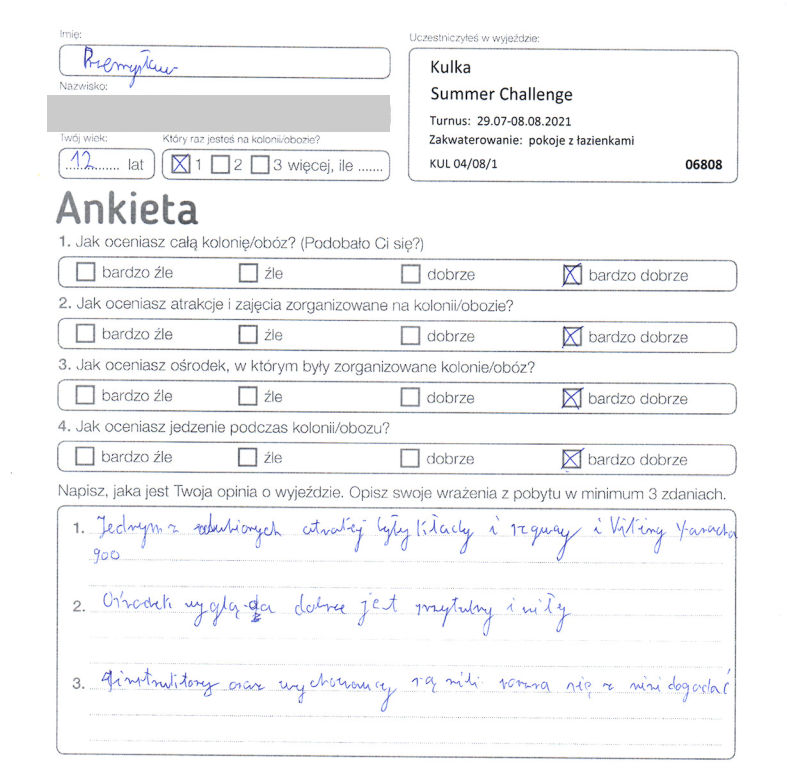 Imię:
Przemysław
Nazwisko:
Twój wiek:
12 lat
Który raz jesteś na kolonii/obozie?
1 2 3 więcej, ile .......
Uczestniczyłeś w wyjeździe:
Kulka
Summer Challenge
Turnus: 29.07-08.08.2021
Zakwaterowanie: pokoje z łazienkami
KUL 04/08/1 06808
Ankieta
1. Jak oceniasz całą kolonię/obóz? (Podobało Ci się?)
bardzo źle źle dobrze bardzo dobrze
2. Jak oceniasz atrakcje i zajęcia zorganizowane na kolonii/obozie?
bardzo źle źle dobrze bardzo dobrze
3. Jak oceniasz ośrodek, w którym były zorganizowane kolonie/obóz?
bardzo źle źle dobrze bardzo dobrze
4. Jak oceniasz jedzenie podczas kolonii/obozu?
bardzo źle źle dobrze bardzo dobrze
Napisz, jaka jest Twoja opinia o wyjeździe. Opisz swoje wrażenia z pobytu w minimum 3 zdaniach.
1. Jednym z ulubionych były i i
900
2. Ośrodek wygląda dobrze jest przytulny i miły
3. oraz wychowawcy są mili można się z nimi dogadać